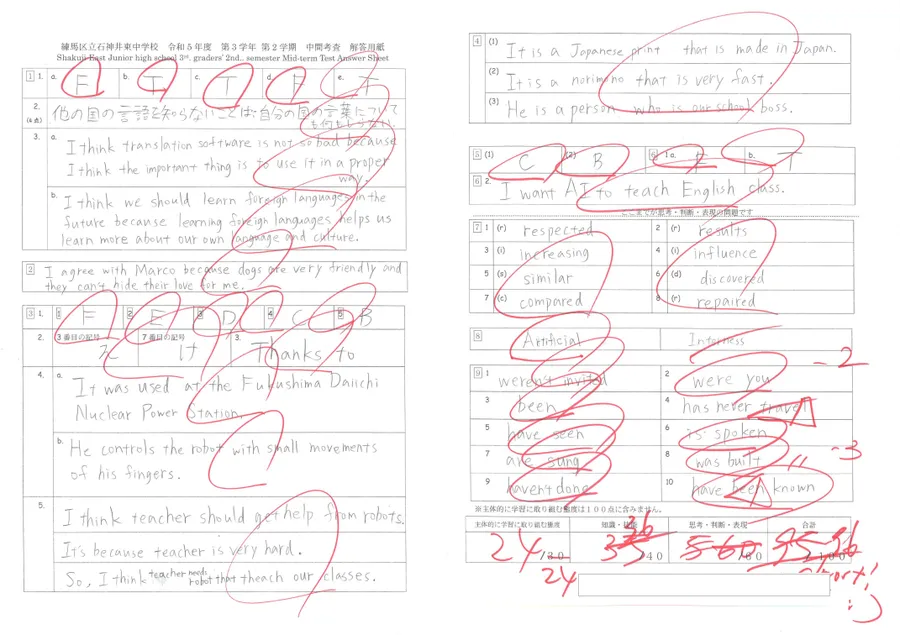 練馬区立石神井東中学校 令和5年度 第3学年 第2学期 中間考査 解答用紙
Shakujii East Junior high school 3rd. graders' 2nd.. semester Mid-term Test Answer Sheet
1 1. a. F b. T c. T d. F e. T
2. (4点) 他の国の言語を知らないことは、自分の国の言葉について
も何もしらない
3. a. I think translation software is not so bad because
I think the important thing is to use it in a proper
way.
b. I think we should learn foreign languages in the
future because learning foreign languages helps us
learn more about our own language and culture.
2 I agree with Marco because dogs are very friendly and
they can't hide their love for me.
3 1. 1 F 2 E 3 D 4 C 5 B
2. 3番目の記号 え 7番目の記号 け 3. Thanks to
4. a. It was used at the Fukushima Daiichi
Nuclear Power Station.
b. He controls the robot with small movements
of his fingers.
5. I think teacher should get help from robots.
It's because teacher is very hard.
So, I think teacher need robot that theach our classes.
4 (1) It is a Japanese print that is made in Japan.
(2) It is a norimono that is very fast.
(3) He is a person who is our school boss.
5 (1) C (2) B 6 1 a. F b. T
6 2. I want AI to teach English class.
ここまでが思考・判断・表現の問題です
7 1 (r) respected 2 (r) results
3 (i) increasing 4 (i) influence
5 (s) similar 6 (d) discovered
7 (c) compared 8 (r) repaired
8 Artificial Interness
-2
9 1 weren't invited 2 were you
3 been 4 has never travel
5 have seen 6 is spoken
-3
7 are sung 8 was built
9 haven't done 10 have been known
※主体的に学習に取り組む態度は100点に含みません。
主体的に学習に取り組む態度 知識・技能 思考・判断・表現 合計
24 /30 36 40 60 /60 95 96 /100
24
:)